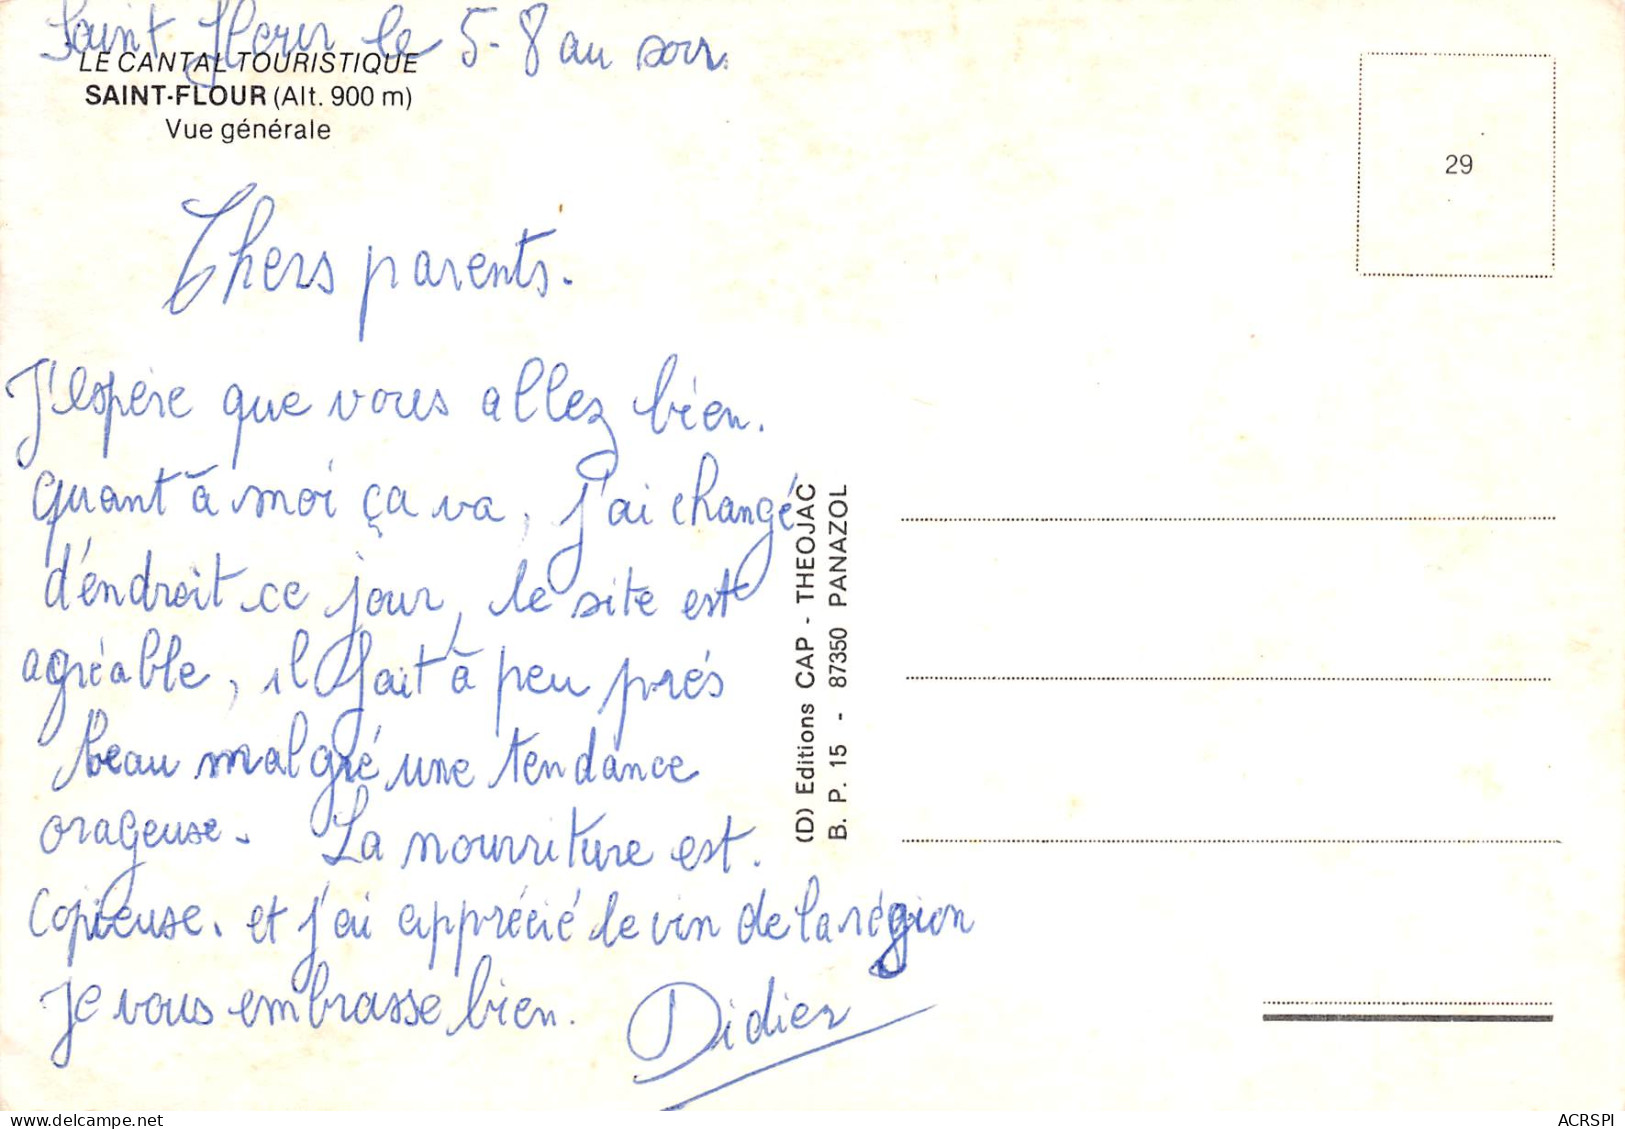 Saint Flour le 5-8 au soir.
LE CANTAL TOURISTIQUE
SAINT-FLOUR (Alt. 900 m)
Vue générale
29
Chers parents.
J'espère que vous allez bien.
quant à moi ça va, j'ai changé
d'endroit ce jour, le site est
agréable, il fait à peu prés
beau malgré une tendance
orageuse. La nourriture est.
copieuse. et j'ai apprécié le vin de la région
Je vous embrasse bien. Didier
(D) Editions CAP - THEOJAC
B. P. 15 - 87350 PANAZOL
delcampe.net
ACRSPI